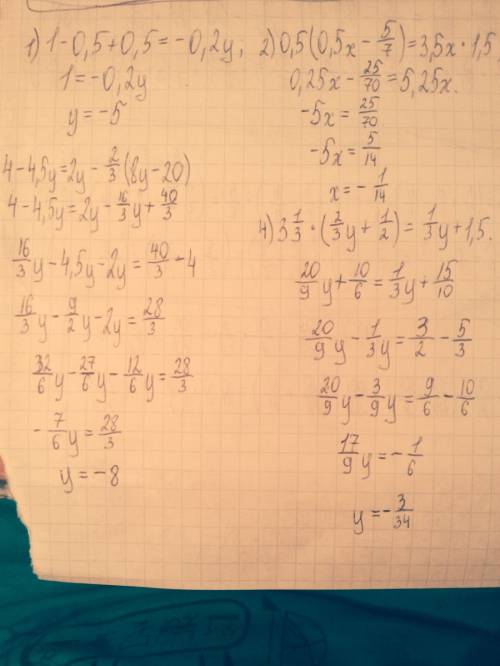 1) 1-0,5+0,5=-0,2y,
1=-0,2y
y=-5
2) 0,5(0,5x-5/7)=3,5x·1,5
0,25x-25/70=5,25x.
-5x=25/70
-5x=5/14
x=-1/14
4-4,5y=2y-2/3(8y-20)
4-4,5y=2y-16/3y+40/3
16/3y-4,5y-2y=40/3-4
16/3y-9/2y-2y=28/3
32/6y-27/6y-12/6y=28/3
-7/6y=28/3
y=-8
4) 3 1/3·(2/3y+1/2)=1/3y+1,5.
20/9y+10/6=1/3y+15/10
20/9y-1/3y=3/2-5/3
20/9y-3/9y=9/6-10/6
17/9y=-1/6
y=-3/34